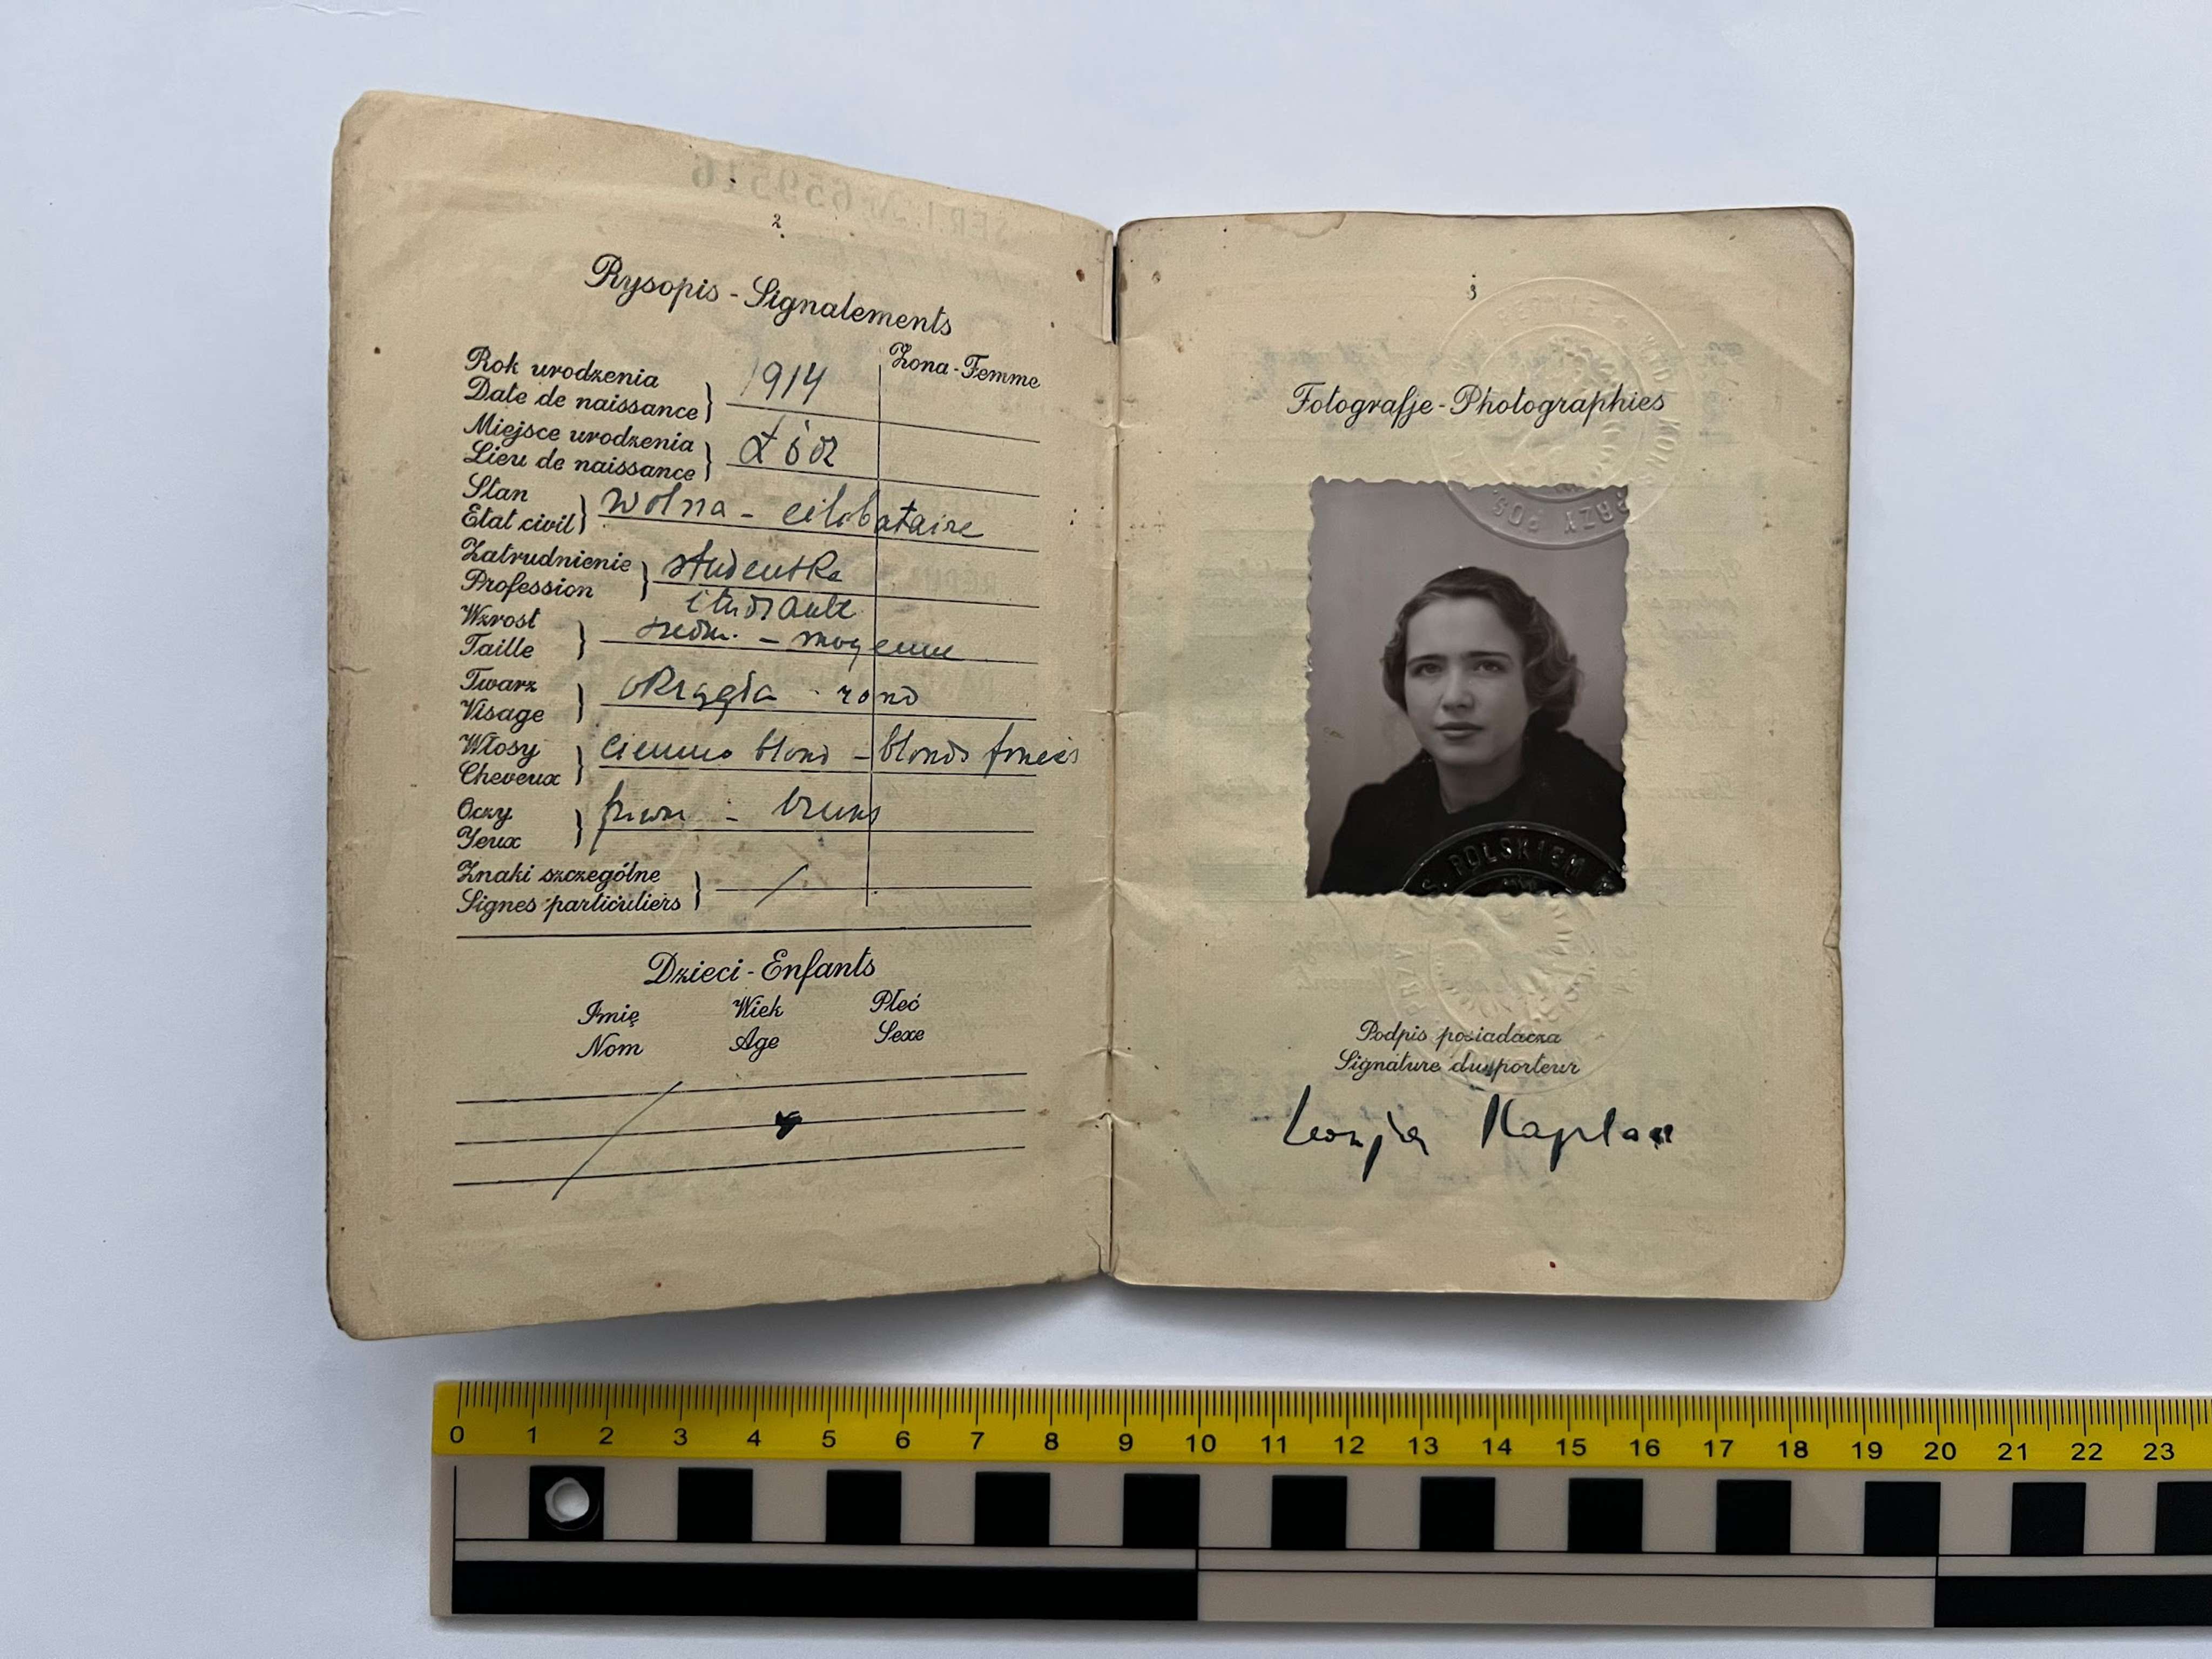 2
Rysopis - Signalements
Żona - Femme
Rok urodzenia
Date de naissance
1914
Miejsce urodzenia
Lieu de naissance
Łódź
Stan
Etat civil
wolna - célibataire
Zatrudnienie
Profession
studentka
étudiante
Wzrost
Taille
średni - moyenne
Twarz
Visage
okrągła - rond
Włosy
Cheveux
ciemno blond - blonds foncés
Oczy
Yeux
piwne - bruns
Znaki szczególne
Signes particuliers
Dzieci - Enfants
Imię Wiek Płeć
Nom Age Sexe
3
Fotografje - Photographies
PRZY POS
S. POLSKIEM
Podpis posiadacza
Signature du porteur
Kaplan
0 1 2 3 4 5 6 7 8 9 10 11 12 13 14 15 16 17 18 19 20 21 22 23